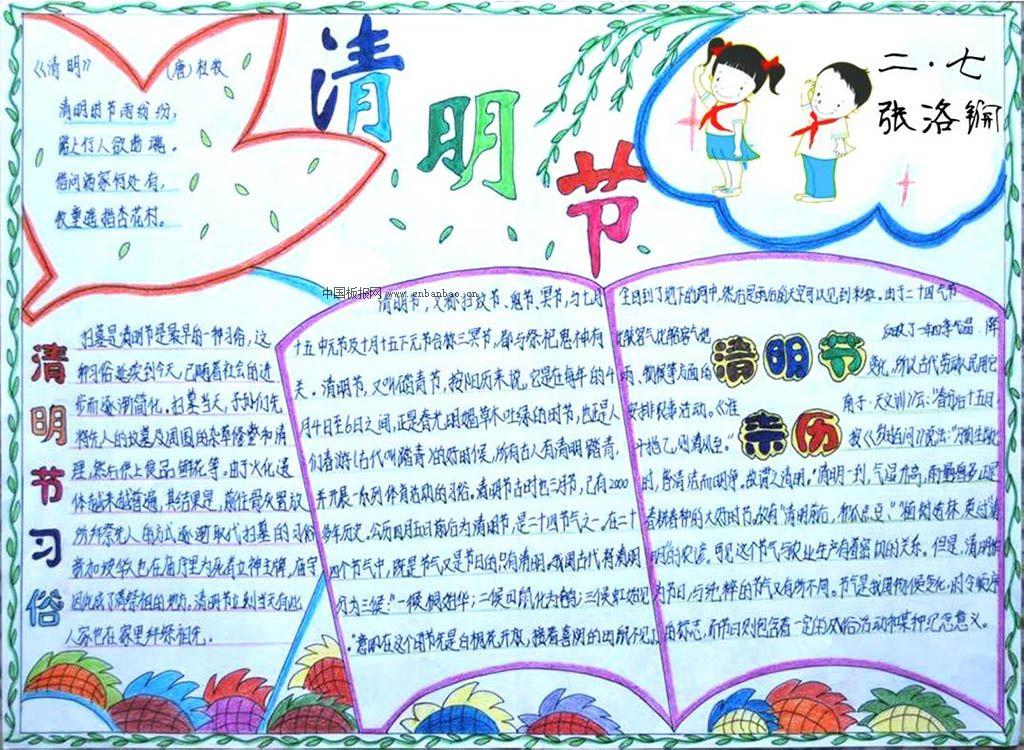 《清明》
(唐)杜牧
清明时节雨纷纷，
路上行人欲断魂。
借问酒家何处有，
牧童遥指杏花村。
清明节
二·七
张洛
中国板报网 www.cnbanbao.cn
清明节习俗
扫墓是清明节最早的一种习俗，这
种习俗延续到今天，已随着社会的进
步而逐渐简化。扫墓当天，子孙们先
将先人的坟墓及周围的杂草修整和清
理，然后供上食品鲜花等。由于火化遗
体越来越普遍，其结果是，前往骨灰置放
所拜祭先人的方式逐渐取代扫墓的习俗
新加坡华人也在庙宇里为死者立神主牌，庙宇
因此成了清祭祖的地方。清明节
人家也在家里拜祭祖先。
清明节，又称扫坟节、鬼节、冥节，与七月
十五中元节及十月十五下元节合称三冥节，都与祭祀鬼神有
关。清明节，又叫踏青节，按阳历来说，它是在每年的4
月4日至6日之间，正是春光明媚草木吐绿的时节，也正是人
们春游(古代叫踏青)的好时候，所以古人有清明踏青，
并开展一系列体育活动的习俗。清明节古时也三月节，已有2000
多年历史。公历四月五日前后为清明节，是二十四节气之一。在二十
四个节气中，既是节气又是节日的只有清明。我国古代将清明
分为三候："一候桐始华；二候田鼠化为鹌；三候虹始见
"意即在这个时节先是白桐花开放，接着喜阴的田鼠不见了
全回到了地下的洞中，然后是雨后的天空可以见到彩虹。由于二十四节气
比较客气比较客气地
清明节
亲历
变化，所以古代劳动人民用它
安排农事活动。《淮
南子·天文训》云："春分后十五日，
斗指乙，则清风至。"
按《岁时百问》说法："万物生长此
时，皆清洁而明净。故谓之清明。"清明一到，气温升高，雨量增多，正是
春耕春种的大好时节。故有"清明前后，种瓜点豆"、"植树造林，莫过清
明"的农谚。可见这个节气与农业生产有着密切的关系。但是，清明作
为节日，与纯粹的节气又有所不同。节气是我国物候变化、时令顺序
的标志，而节日则包含着一定的风俗活动和某种纪念意义。